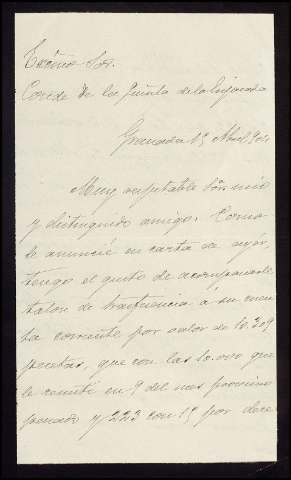 Excmo Sor.
Conde de la Quinta de la Enjarada
Granada 15 Abril 904
Muy respetable Sor. mio
y distinguido amigo: Como
le anuncié en carta de ayer,
tengo el gusto de acompañarle
talon de trasferencia á su cuen
ta corriente por valor de 10.209
pesetas, que con las 10.000 que
le remití en 9 del mes proximo
pasado y 223 con 15 por dere